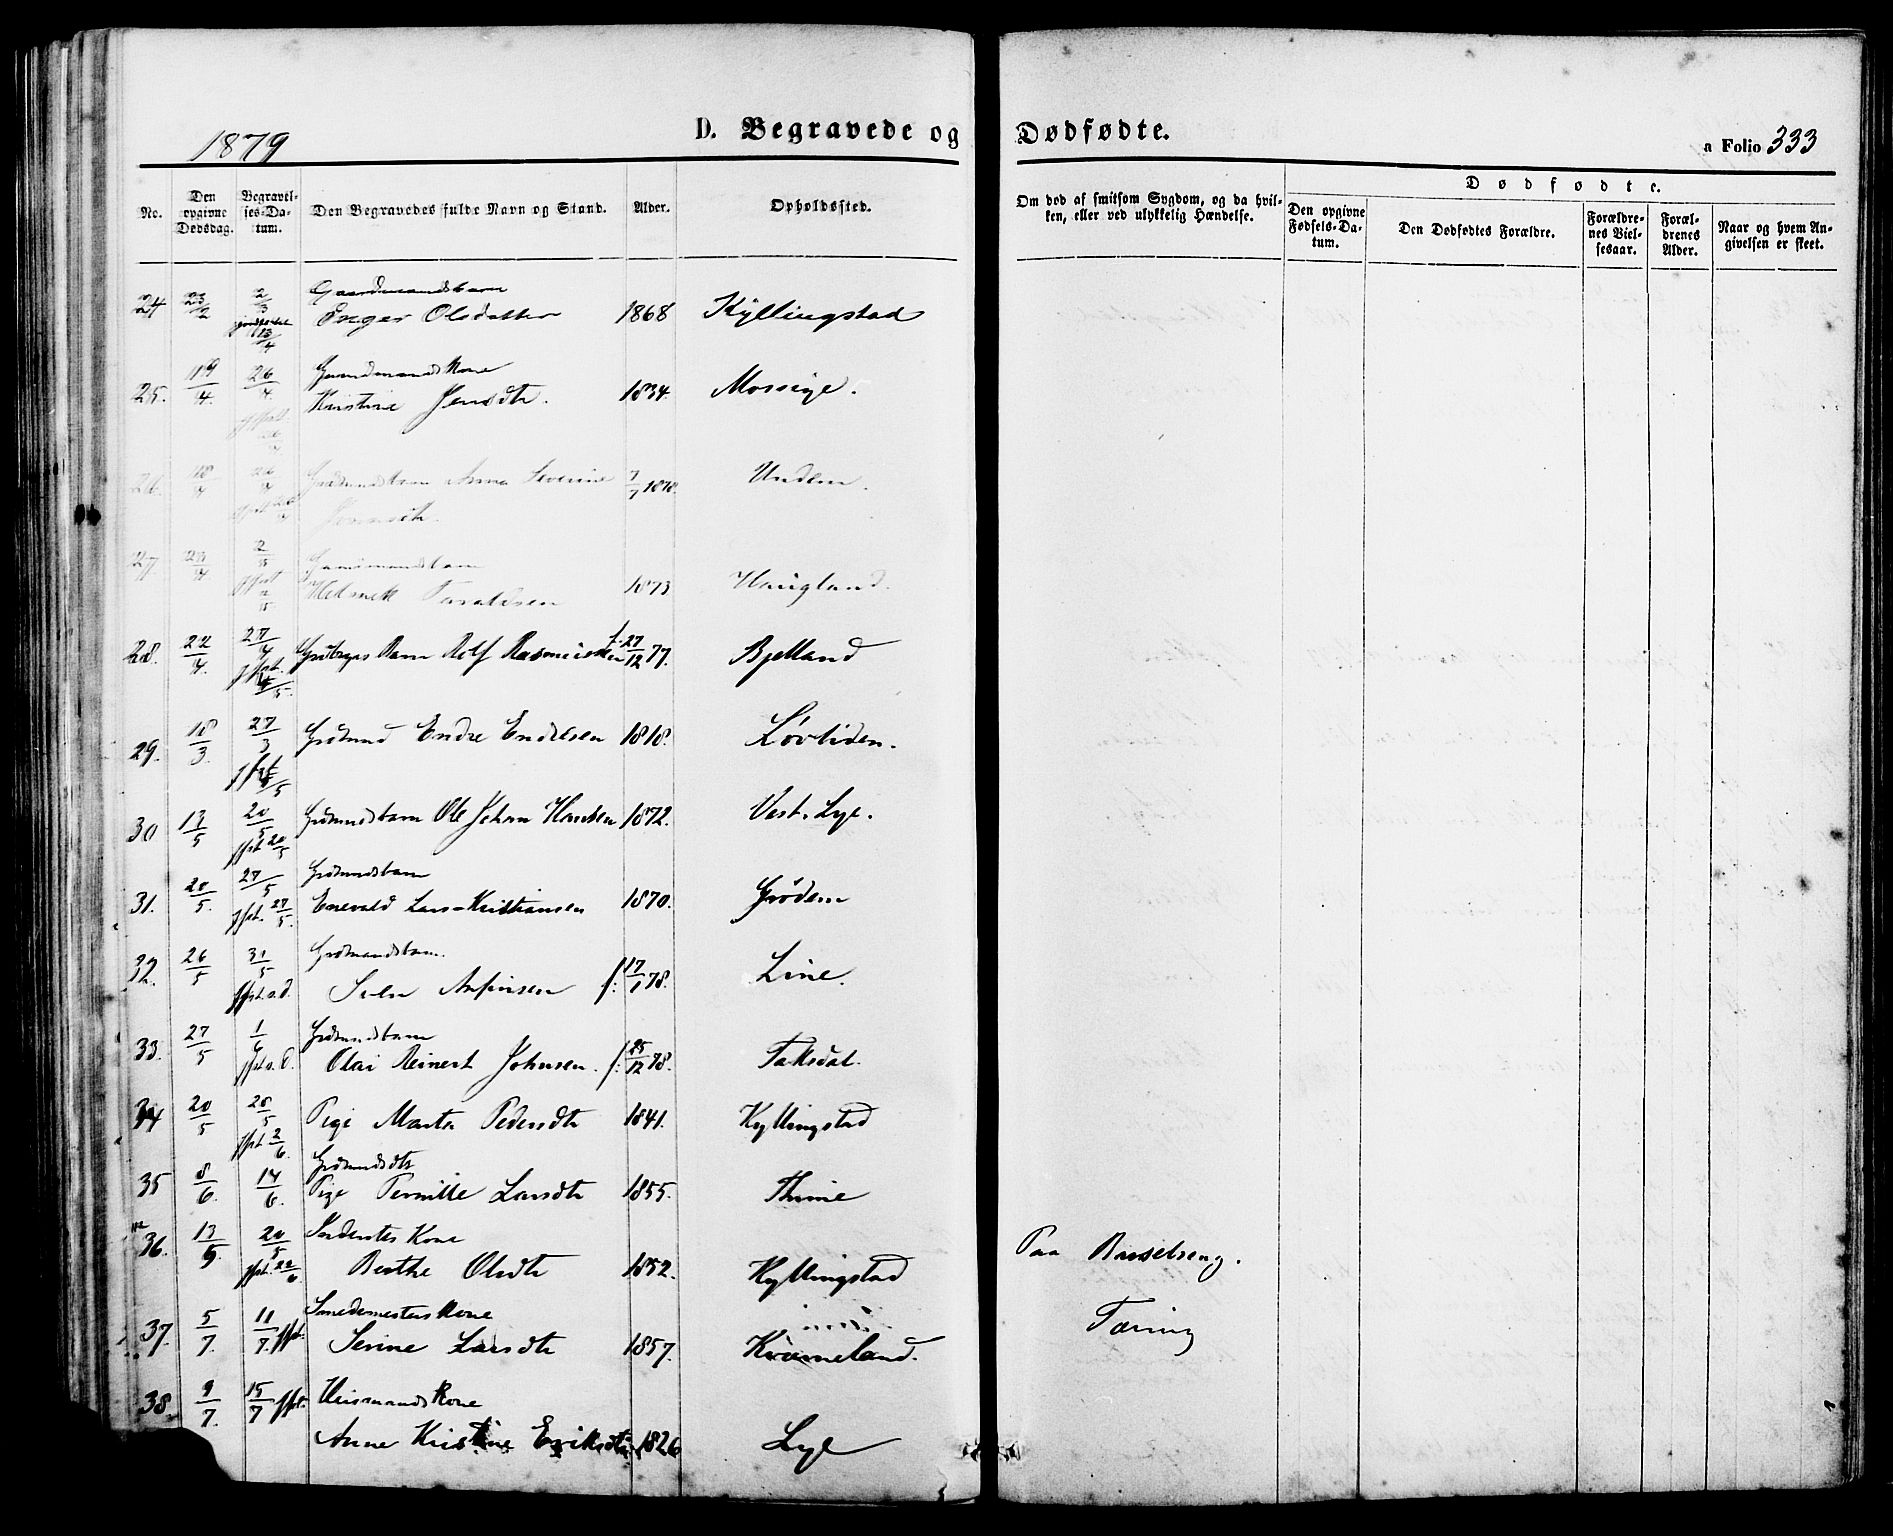 1879
D. Begravede og Dødfødte.
a Folio 333
No.
Den opgivne Dødsdag.
Begravelses-Datum.
Den Begravedes fulde Navn og Stand.
Alder.
Opholdssted.
Om død af smitsom Sygdom, og da hvilken, eller ved ulykkelig Hændelse.
Dødfødte.
Den opgivne Fødsels-Datum.
Den Dødfødtes Forældre.
Forældrenes Vielsesaar.
Forældrenes Alder.
Naar og hvem Angivelsen er skeet.
24 23/2 2/3 13/4 Gaardmandsbarn
Enger Olsdatter 1868 Kyllingstad
25. 19/4. 26/4 Gaardmandskone
Kristine Jensdtr. 1834. Mossige.
26. 18/4 Anna Severine 7/7 1878. Undem.
27. 23/4 2/5 Gaardmandsbarn
Taraldsen 1873 Haugland.
28. 22/4. 27/4 Barn Rolf Rasmussen f. 27/12 77. Bjelland
29. 18/3. 27/3 Grdmand Endre Endresen 1818. Løvliden.
30 13/5 20/5 fpst. 20/5 Grdmandsbarn Ole Johan Hansen 1872. Vest. Lye.
31. 20/5. 27/5 fpst. 27/5. Grdmandsbarn
Enevald Lars-Kristiansen 1870. Grødem
32. 26/5 31/5 fpst. s. d. Grdmandsbarn.
Sven Asfinsen f: 17/1 78. Line.
33. 27/5 1/6 fpst s. d. Grdmandsbarn
Olai Reinert Johnsen. f: 25/12 78. Taksdal.
34 20/5 28/5 fpst. 2/6 Pige Marta Pedersdtr 1841. Kyllingstad
35 8/6. 14/6. Grdmandsdtr
Pige Pernille Larsdtr 1855. Thime
36. 13/5. 20/5 fpst. 22/6 Kone
Berthe Olsdtr 1852. Kyllingstad Paa Barselseng.
37. 5/7. 11/7. fpst. Smedemesters Kone
Serine Larsdtr 1857. Kværneland. Tæring
38. 9/7. 15/7 fpst. Huusmandskone
Anne Kristine Eriksdtr 1826 Lye